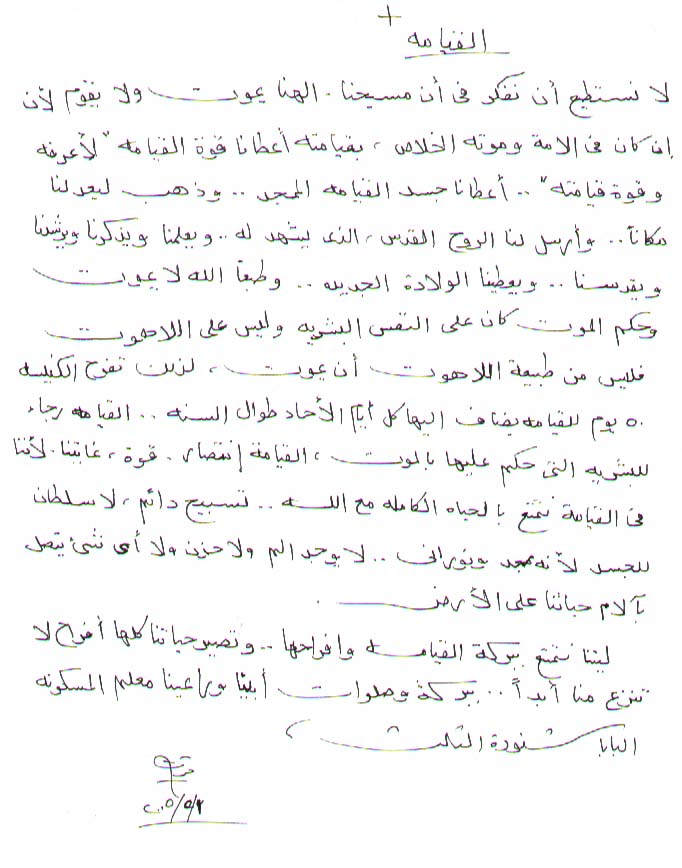 +
القيامه
لا نستطيع أن نفكر فى أن مسيحنا. الهنا يموت ولا يقوم لأن
إن كان فى الامة وموته الخلاص ، بقيامته أعطانا قوة القيامه "لأعرفه
وقوة قيامته" .. أعطانا جسد القيامه الممجد .. وذهب ليعد لنا
مكاناً .. وأرسل لنا الروح القدس ، الذى يشهد له .. ويعلمنا ويذكرنا ويرشدنا
ويقدسنا .. ويعطينا الولادة الجديده .. وطبعاً الله لا يموت
وحكم الموت كان على النفس البشريه وليس على اللاهوت
فليس من طبيعة اللاهوت أن يموت ، لذلك تفرح الكنيسه
٥٠ يوم للقيامه يضاف اليها كل أيام الأحاد طوال السنه .. القيامه رجاء
للبشريه التى حكم عليها بالموت ، القيامة إنتصار . قوة ، غايتنا . لأننا
فى القيامة نتمتع بالحياه الكامله مع الله .. تسبيح دائم ، لا سلطان
للجسد لأنه ممجد ونورانى .. لا يوجد الم ولا حزن ولا أى شئ يتصل
بآلام حياتنا على الأرض .
ليتنا نتمتع ببركة القيامه وافراحها .. وتصير حياتنا كلها أفراح لا
تنزع منا أبداً .. ببركة وصلوات أبينا وراعينا معلم المسكونه
البابا شنودة الثالث
٢٠٠٥/٥/٢